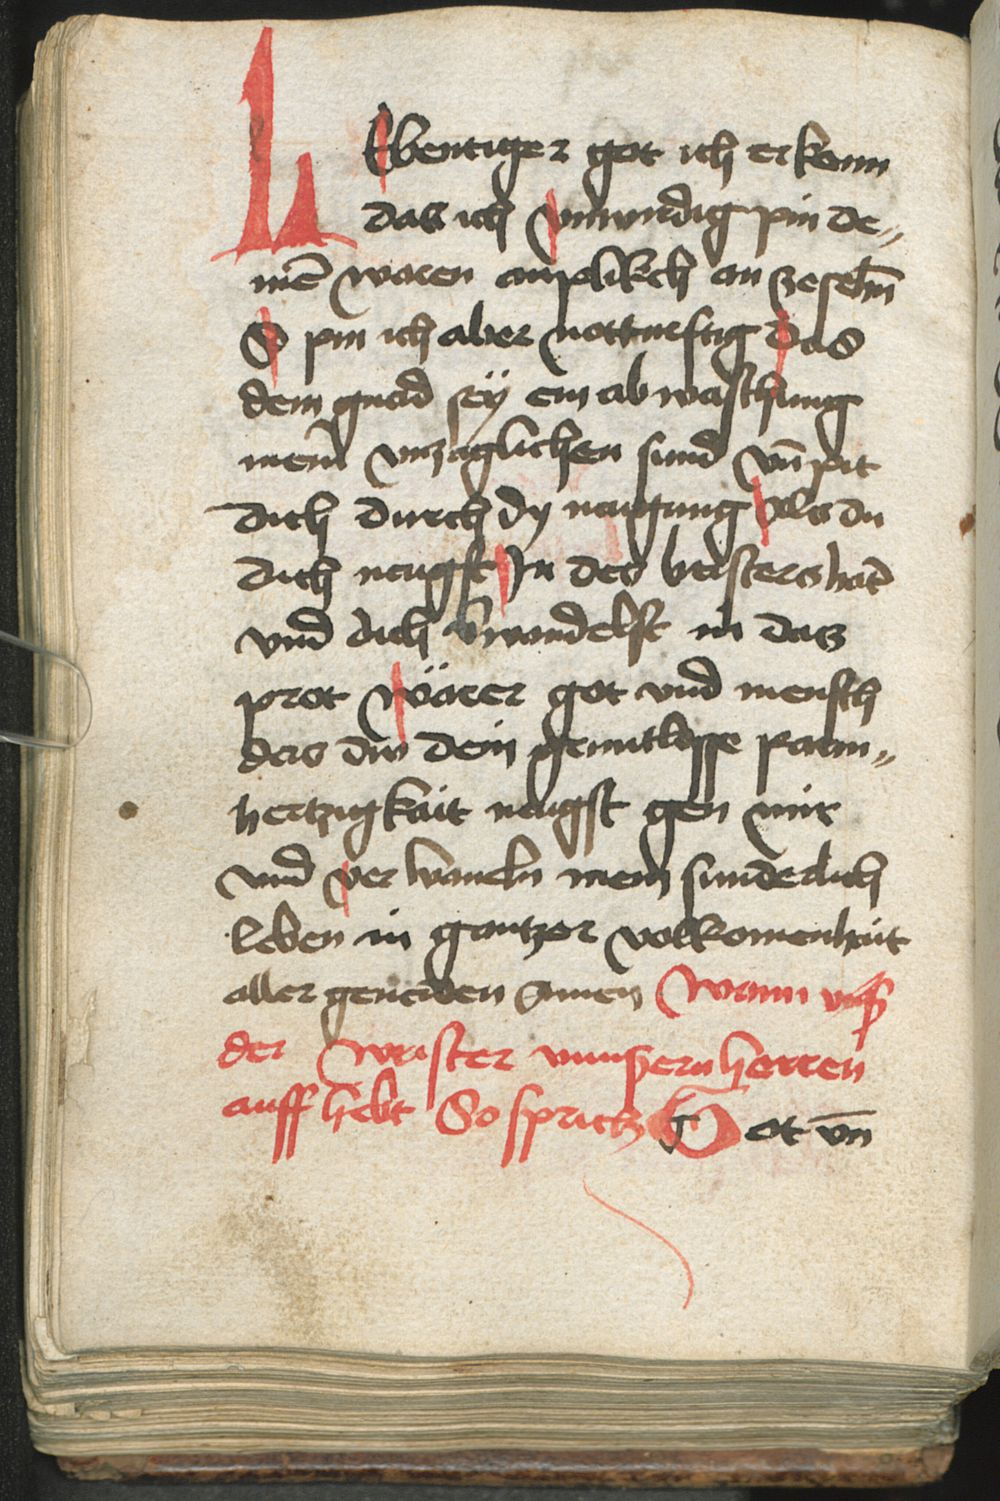 LEbentiger got ich erkenn
das ich vnwirdig pin de„
inē waren anplikch an zesehn̄
So pin ich aber nottturftig das
dein gnad sey ein abwaschung
meinr̄ vnzaglichen sund vn̄ pit
dich durch dy naygung als du
dich naygst In des briesters hant̄
vnd dich verwandelst in das
prot wärer got vnd mensch
das du dein grunntlosse parm„
hertzigkait naygst gen mir
vnd verwaneln mein sunderlich
leben in gantzer volkomenhait
aller genaden Amen Wann vns
der Briester vnnsern herren
auff hebt So sprich Got vn̄